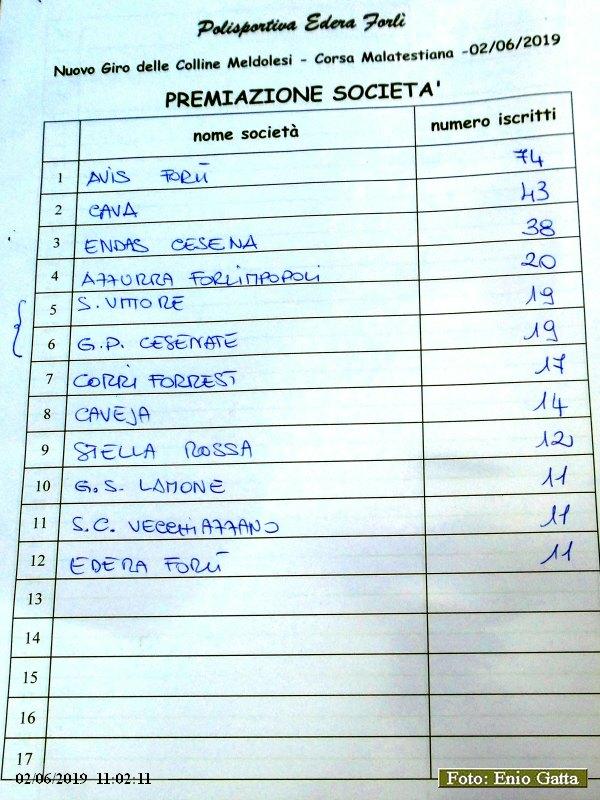 Polisportiva Edera Forlì
Nuovo Giro delle Colline Meldolesi - Corsa Malatestiana -02/06/2019
PREMIAZIONE SOCIETA'
nome società numero iscritti
1 AVIS FORLÌ 74
2 CAVA 43
3 ENDAS CESENA 38
4 AZZURRA FORLIMPOPOLI 20
5 S. VITTORE 19
6 G.P. CESENATE 19
7 CORRI FORREST 17
8 CAVEJA 14
9 STELLA ROSSA 12
10 G.S. LAMONE 11
11 S.C. VECCHIAZZANO 11
12 EDERA FORLÌ 11
13
14
15
16
17
02/06/2019 11:02:11
Foto: Enio Gatta